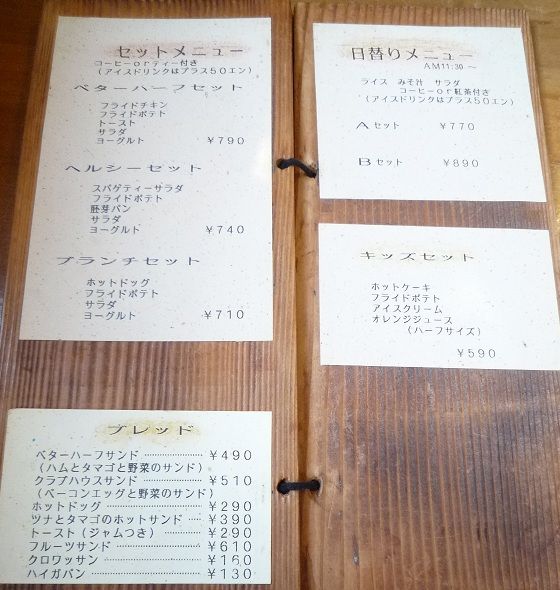 セットメニュー
コーヒーorティー付き
(アイスドリンクはプラス50エン)
ベターハーフセット
フライドチキン
フライドポテト
トースト
サラダ
ヨーグルト ￥790
ヘルシーセット
スパゲティーサラダ
フライドポテト
胚芽パン
サラダ
ヨーグルト ￥740
ブランチセット
ホットドッグ
フライドポテト
サラダ
ヨーグルト ￥710
ブレッド
ベターハーフサンド ………………… ￥490
(ハムとタマゴと野菜のサンド)
クラブハウスサンド ………………… ￥510
(ベーコンエッグと野菜のサンド)
ホットドッグ ………………… ￥290
ツナとタマゴのホットサンド …… ￥390
トースト(ジャムつき) ………… ￥290
フルーツサンド ………………… ￥610
クロワッサン ………………… ￥160
ハイガパン ………………… ￥130
日替りメニュー
AM11:30～
ライス みそ汁 サラダ
コーヒーor紅茶付き
(アイスドリンクはプラス50エン)
Aセット ￥770
Bセット ￥890
キッズセット
ホットケーキ
フライドポテト
アイスクリーム
オレンジジュース
(ハーフサイズ)
￥590